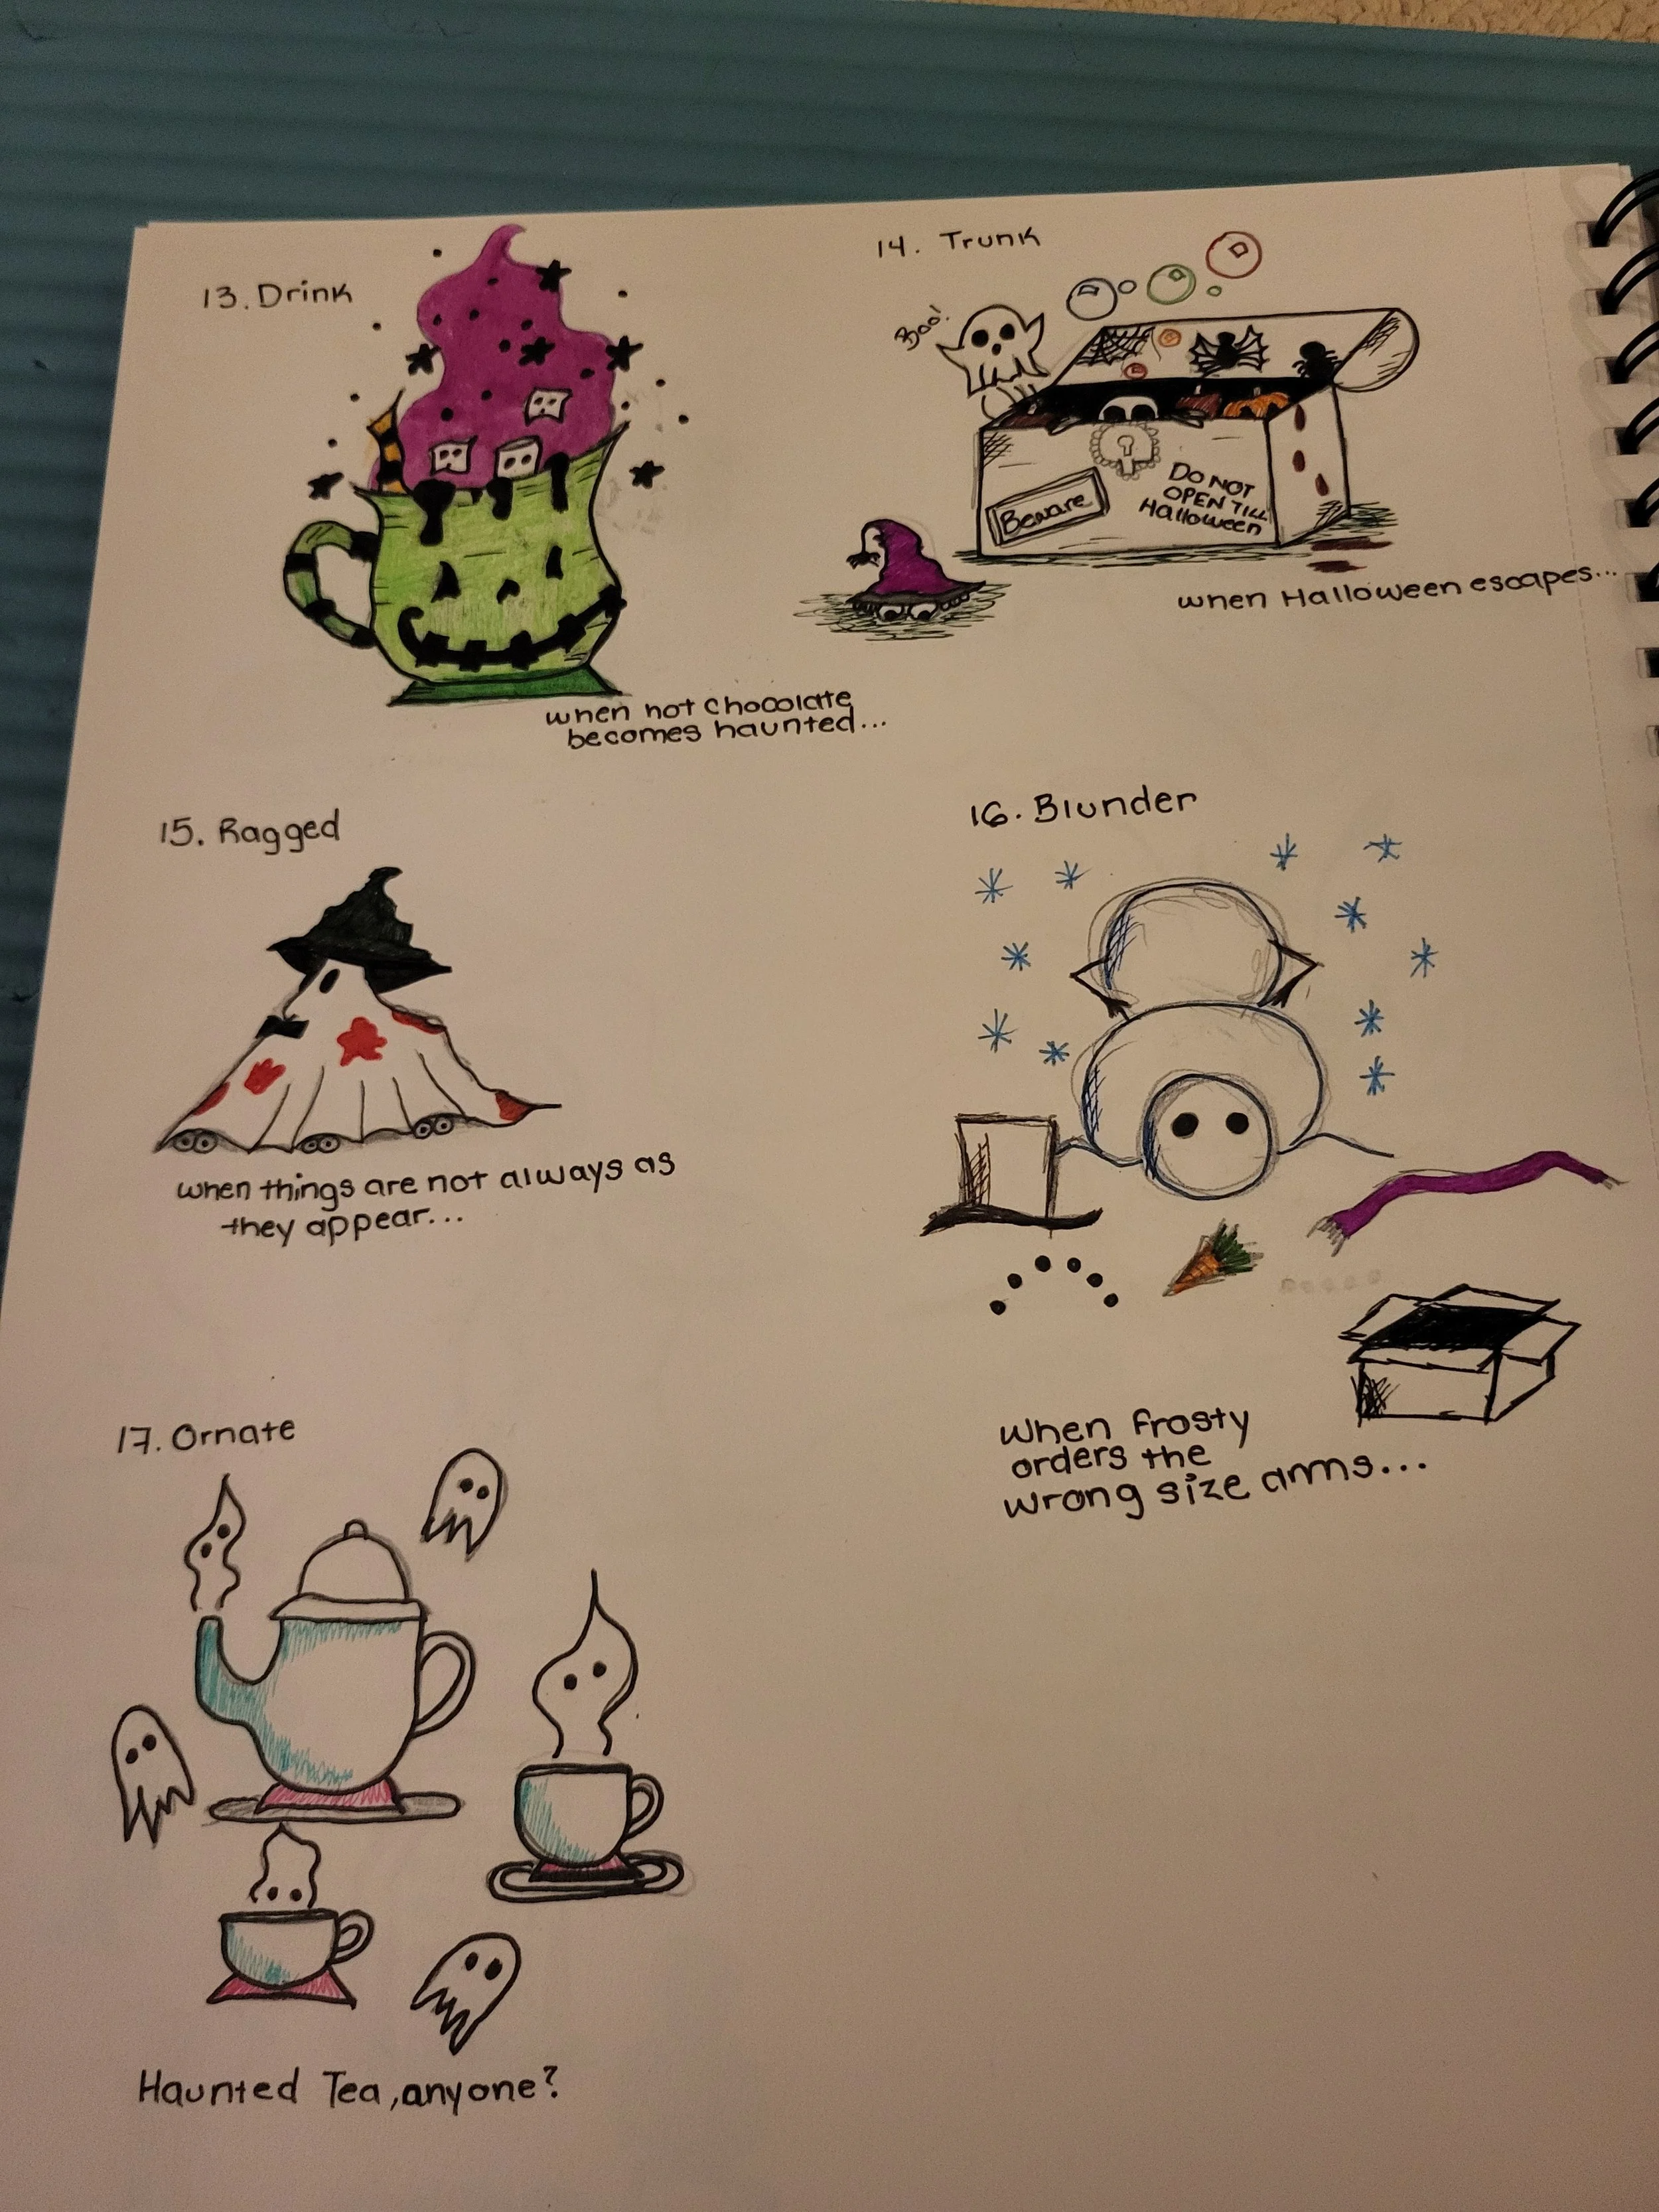 13. Drink
when hot chocolate
becomes haunted...
14. Trunk
Boo!
Beware
DO NOT
OPEN TILL
Halloween
when Halloween escapes...
15. Ragged
when things are not always as
they appear...
16. Blunder
When frosty
orders the
wrong size arms...
17. Ornate
Haunted Tea, anyone?